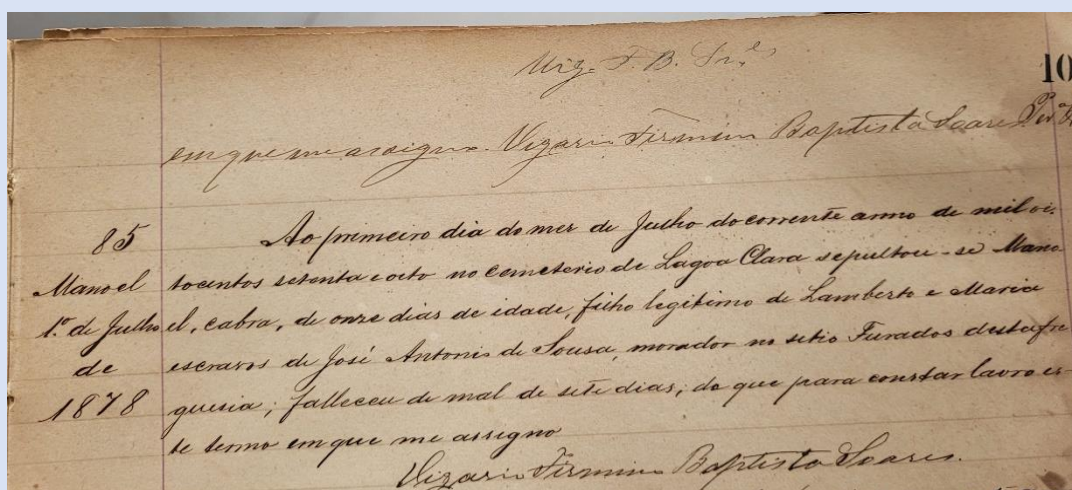 Vig. F. B. Sr.es
10
em que me assigno. Vigario Firmino Baptista Soares
85
Manoel
1.º de Julho
de
1878
Ao primeiro dia do mez de Julho do corrente anno de mil oi-
tocentos setenta e oito no cemeterio de Lagoa Clara sepultou-se Mano-
el, cabra, de onze dias de idade, filho legitimo de Lamberto e Maria
escravos de José Antonio de Sousa, morador no sitio Furados desta fre
guesia; falleceu de mal de sete dias; do que para constar lavro es-
te termo em que me assigno
Vigario Firmino Baptista Soares.